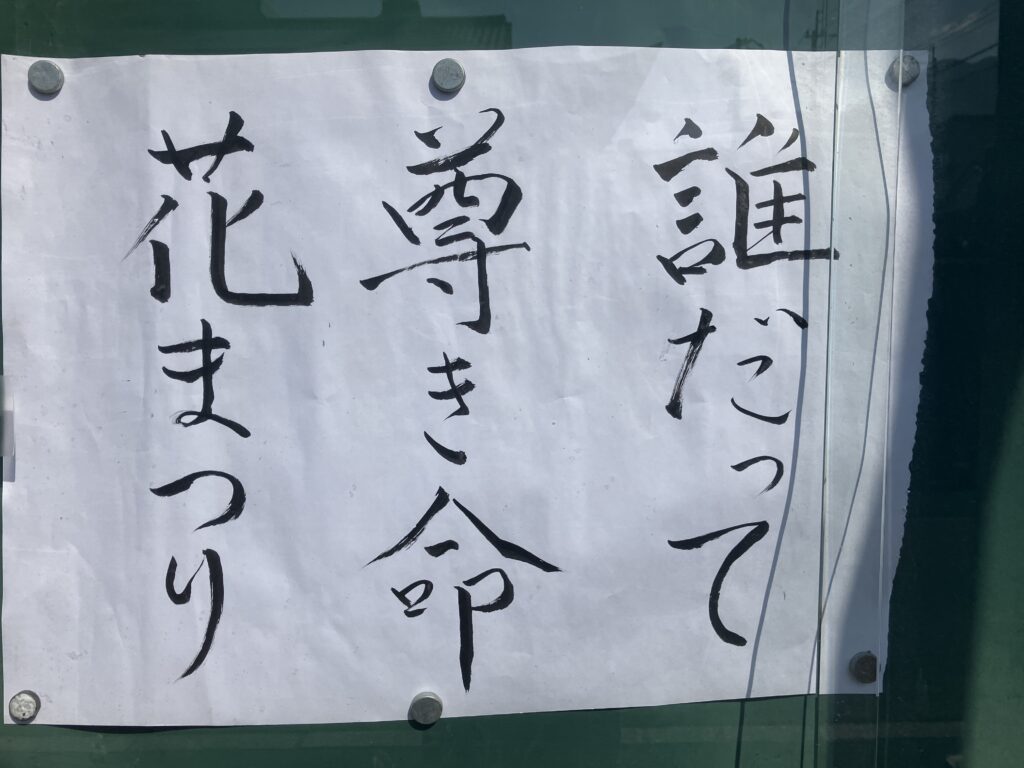 誰だって
尊き命
花まつり